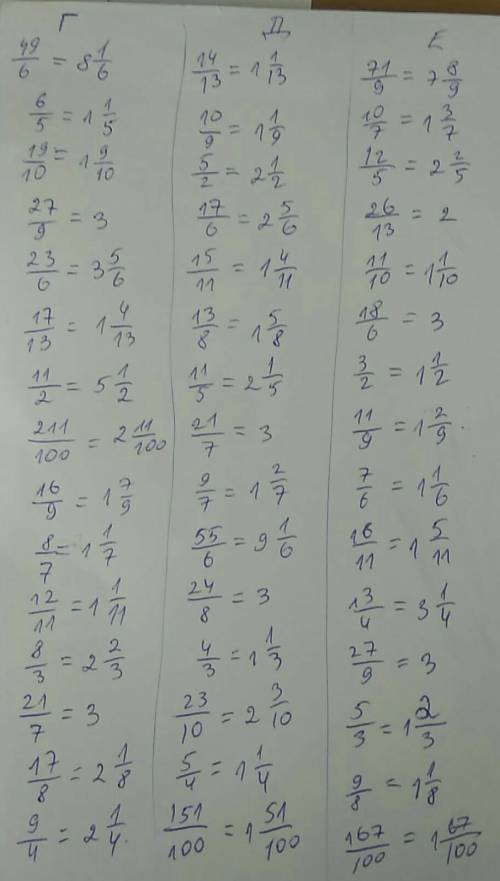 Г
49/6 = 8 1/6
6/5 = 1 1/5
19/10 = 1 9/10
27/9 = 3
23/6 = 3 5/6
17/13 = 1 4/13
11/2 = 5 1/2
211/100 = 2 11/100
16/9 = 1 7/9
8/7 = 1 1/7
12/11 = 1 1/11
8/3 = 2 2/3
21/7 = 3
17/8 = 2 1/8
9/4 = 2 1/4.
Д
14/13 = 1 1/13
10/9 = 1 1/9
5/2 = 2 1/2
17/6 = 2 5/6
15/11 = 1 4/11
13/8 = 1 5/8
11/5 = 2 1/5
21/7 = 3
9/7 = 1 2/7
55/6 = 9 1/6
24/8 = 3
4/3 = 1 1/3
23/10 = 2 3/10
5/4 = 1 1/4
151/100 = 1 51/100
Е
71/9 = 7 8/9
10/7 = 1 3/7
12/5 = 2 2/5
26/13 = 2
11/10 = 1 1/10
18/6 = 3
3/2 = 1 1/2
11/9 = 1 2/9.
7/6 = 1 1/6
16/11 = 1 5/11
13/4 = 3 1/4
27/9 = 3
5/3 = 1 2/3
9/8 = 1 1/8
167/100 = 1 67/100